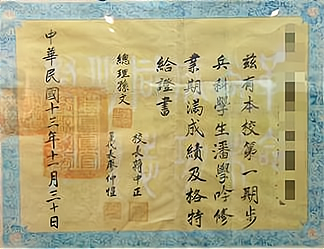 茲有本校第一期步
兵科學生潘學吟修
業期滿成績及格特
給證書
總理孫文
校長蔣中正
黨代表廖仲愷
中華民國十三年十一月三十日